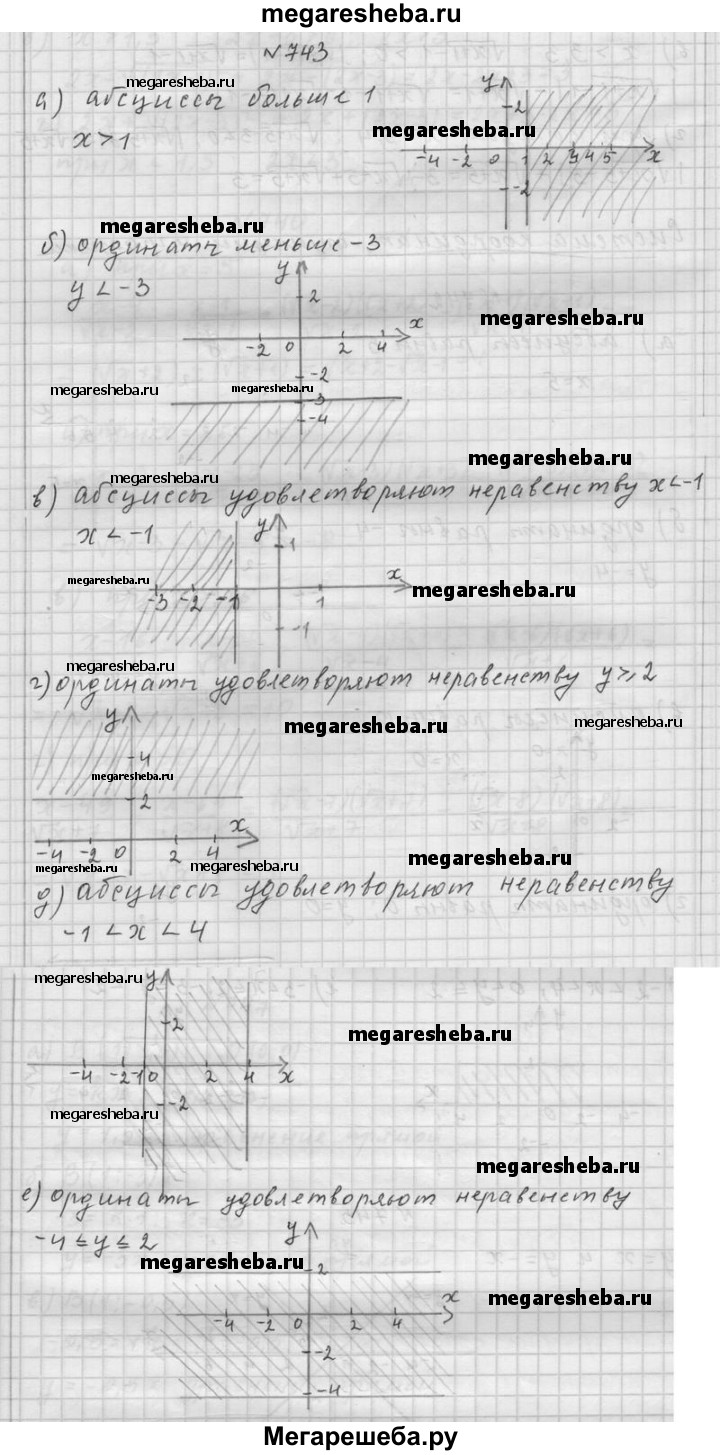 megaresheba.ru
№743
megaresheba.ru
а) абсциссы больше 1
x > 1
y
2
megaresheba.ru
-4 -2 0 1 2 3 4 5 x
-2
megaresheba.ru
б) ординаты меньше -3
y < -3
y
2
megaresheba.ru
x
-2 0 2 4
-2
megaresheba.ru
megaresheba.ru
-3
-4
megaresheba.ru
megaresheba.ru
в) абсциссы удовлетворяют неравенству x<-1
x < -1
y
1
megaresheba.ru
x
megaresheba.ru
-3 -2 -1 1
-1
megaresheba.ru
г) ординаты удовлетворяют неравенству y⩾2
y
megaresheba.ru
megaresheba.ru
4
megaresheba.ru
2
x
-4 -2 0 2 4
megaresheba.ru
megaresheba.ru
megaresheba.ru
д) абсциссы удовлетворяют неравенству
-1 < x < 4
megaresheba.ru
y
2
megaresheba.ru
-4 -2 -1 0 2 4 x
-2
megaresheba.ru
megaresheba.ru
е) ординаты удовлетворяют неравенству
-4 ≤ y ≤ 2
y
megaresheba.ru
2
x
megaresheba.ru
-4 -2 0 2 4
-2
-4
Мегарешеба.ру